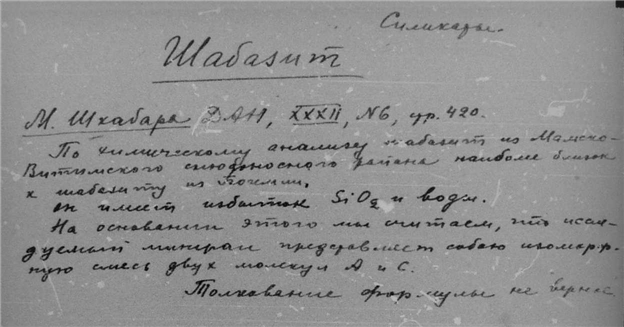 Силикаты.
Шабазит
М. Шкабара ДАН, XXXII, №6, стр. 420.
По химическому анализу шабазит из Мамско-
Витимского слюдоносного района наиболе близок
к шабазиту из Богемии,
он имеет избыток SiO2 и воды.
На основании этого мы считаем, что иссл-
дуемый минерал представляет собою изоморф-
ную смесь двух молекул А и С.
Толкование формулы не верное